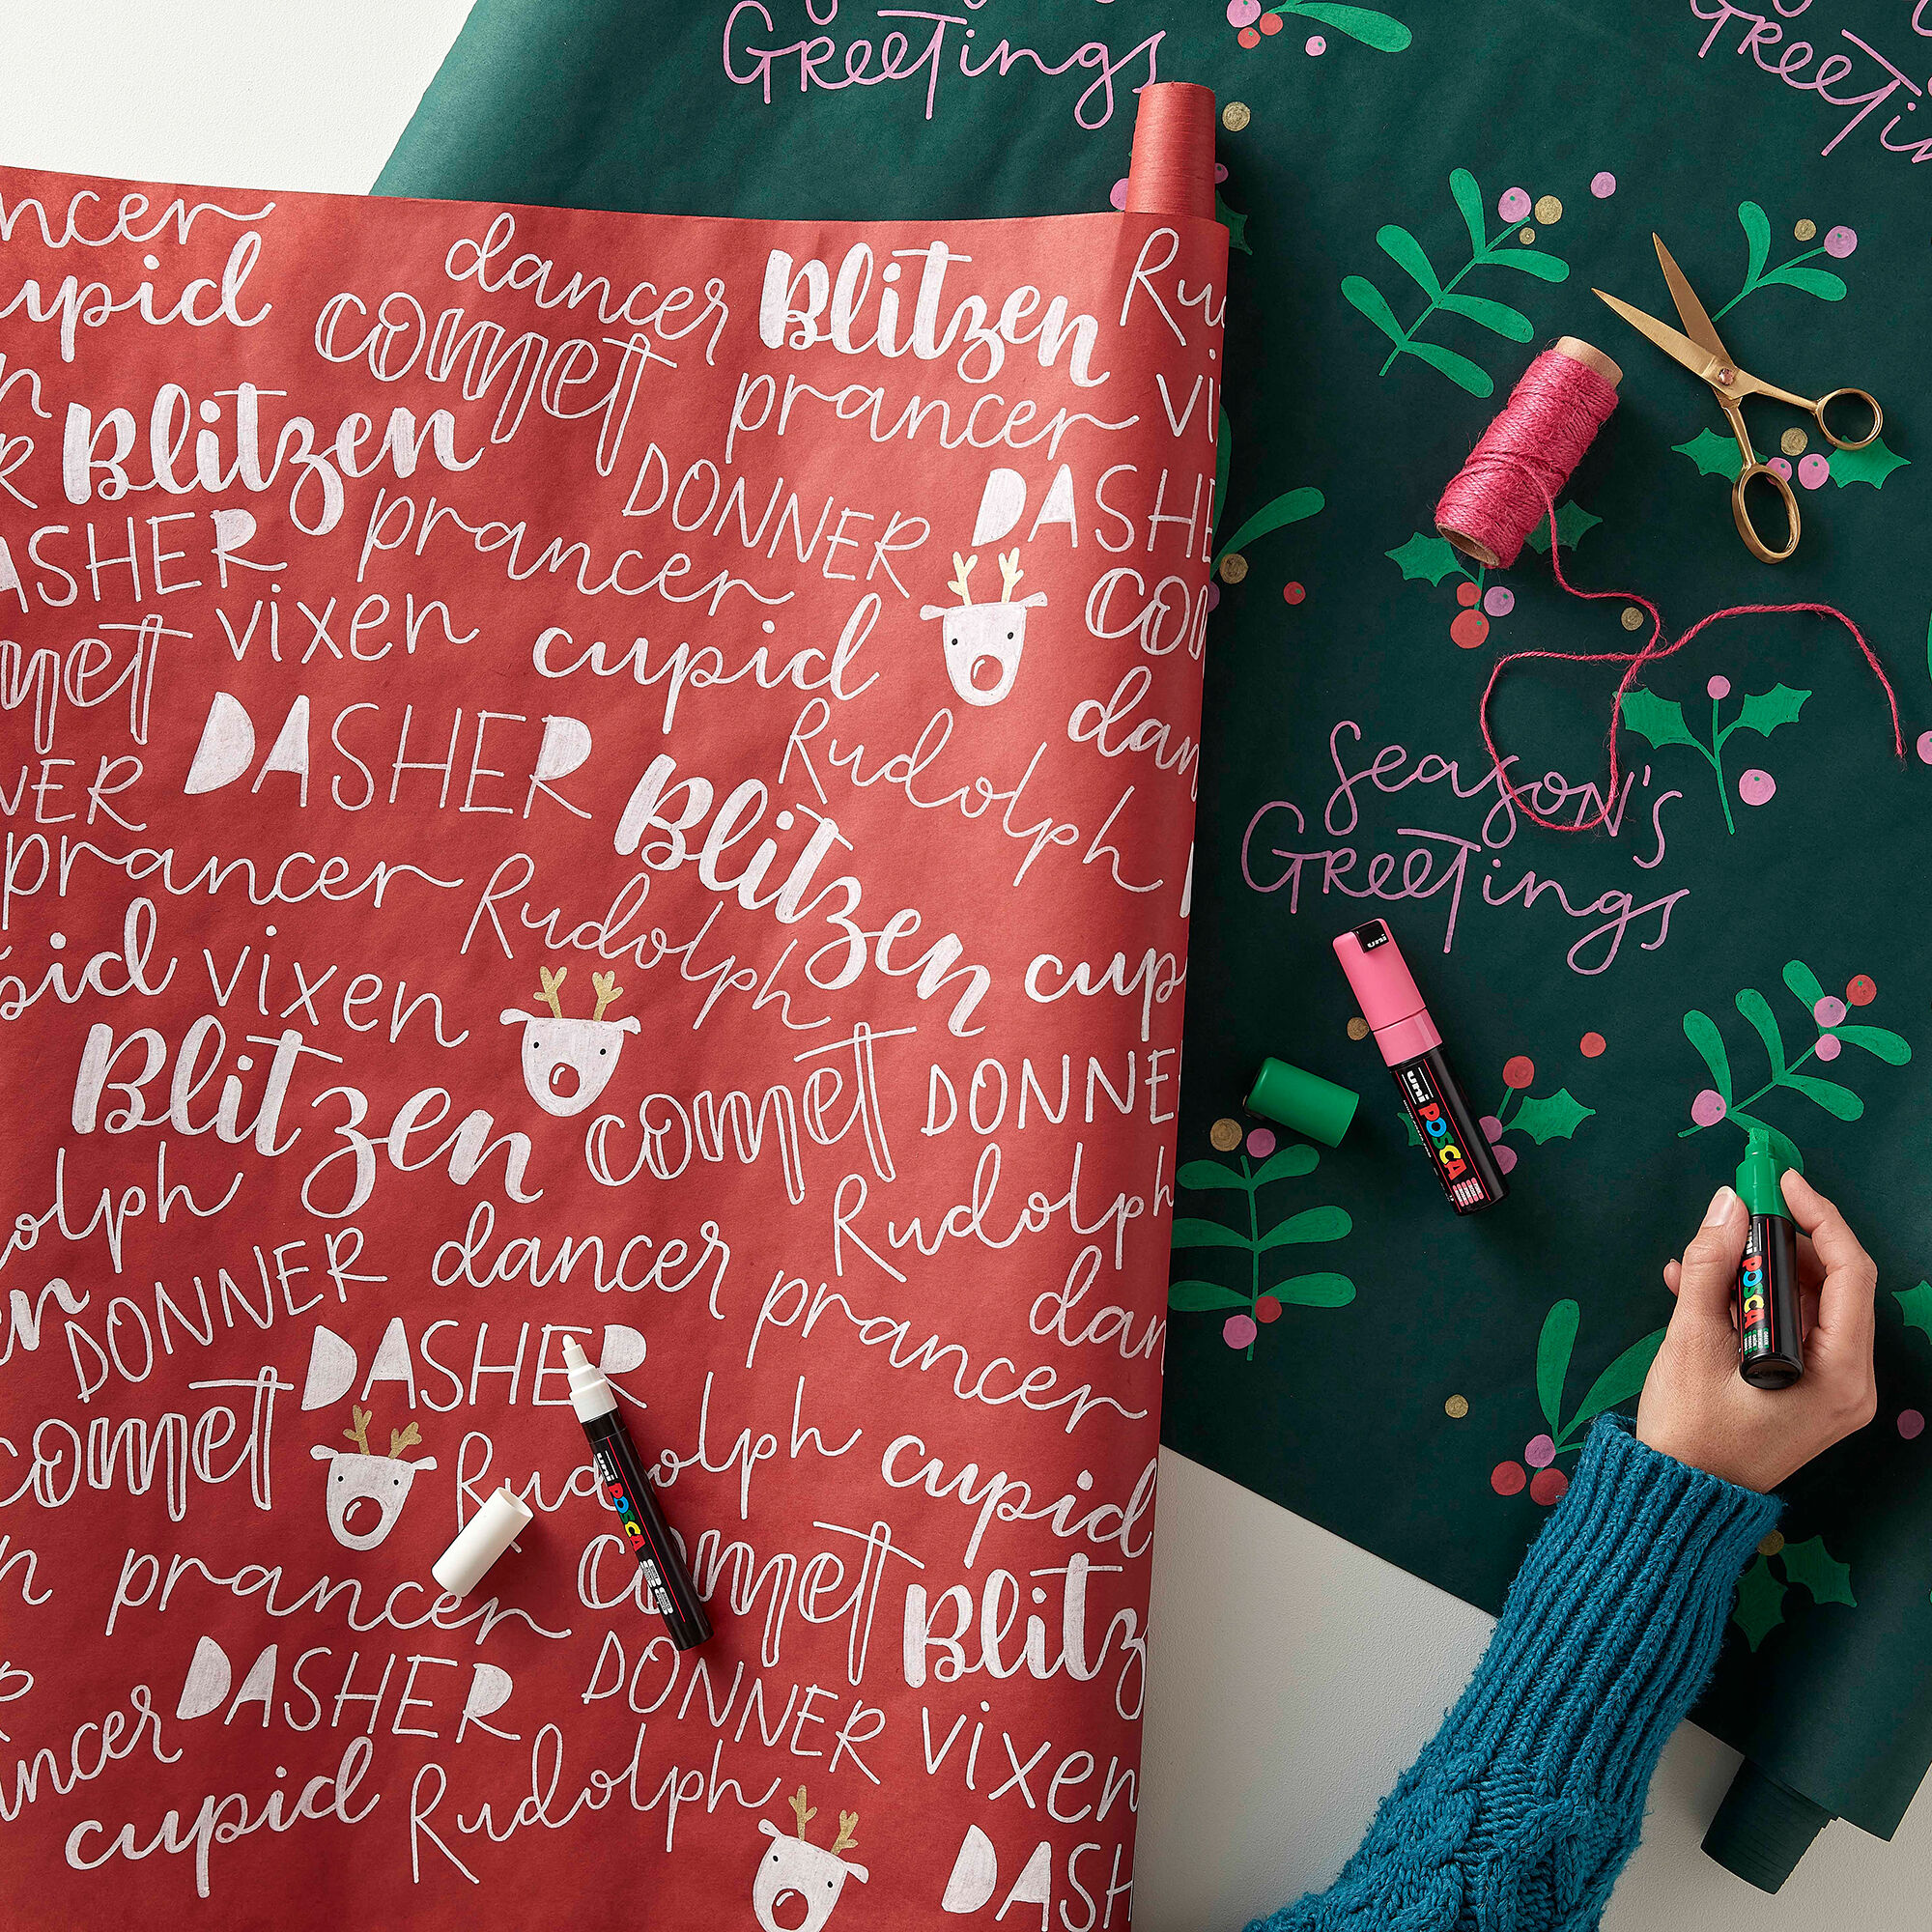 Greetings
Greeti
ncer
cupid
dancer
Blitzen
Ru
comet
prancer
vi
Blitzen
DONNER
DASHER
prancer
ASHER
vixen
cupid
com
met
DASHER
Rudolph
dan
NER
Blitzen
prancer
Rudolph
season's
Greetings
cupid
vixen
cup
Blitzen
comet
DONNE
uni
uni POSCA
olph
Rudolph
DONNER
dancer
prancer
dan
POSCA
DASHER
comet
Rudolph
cupid
uni POSCA
prancer
comet
Blitz
DASHER
DONNER
vixen
ancer
cupid
Rudolph
DASH